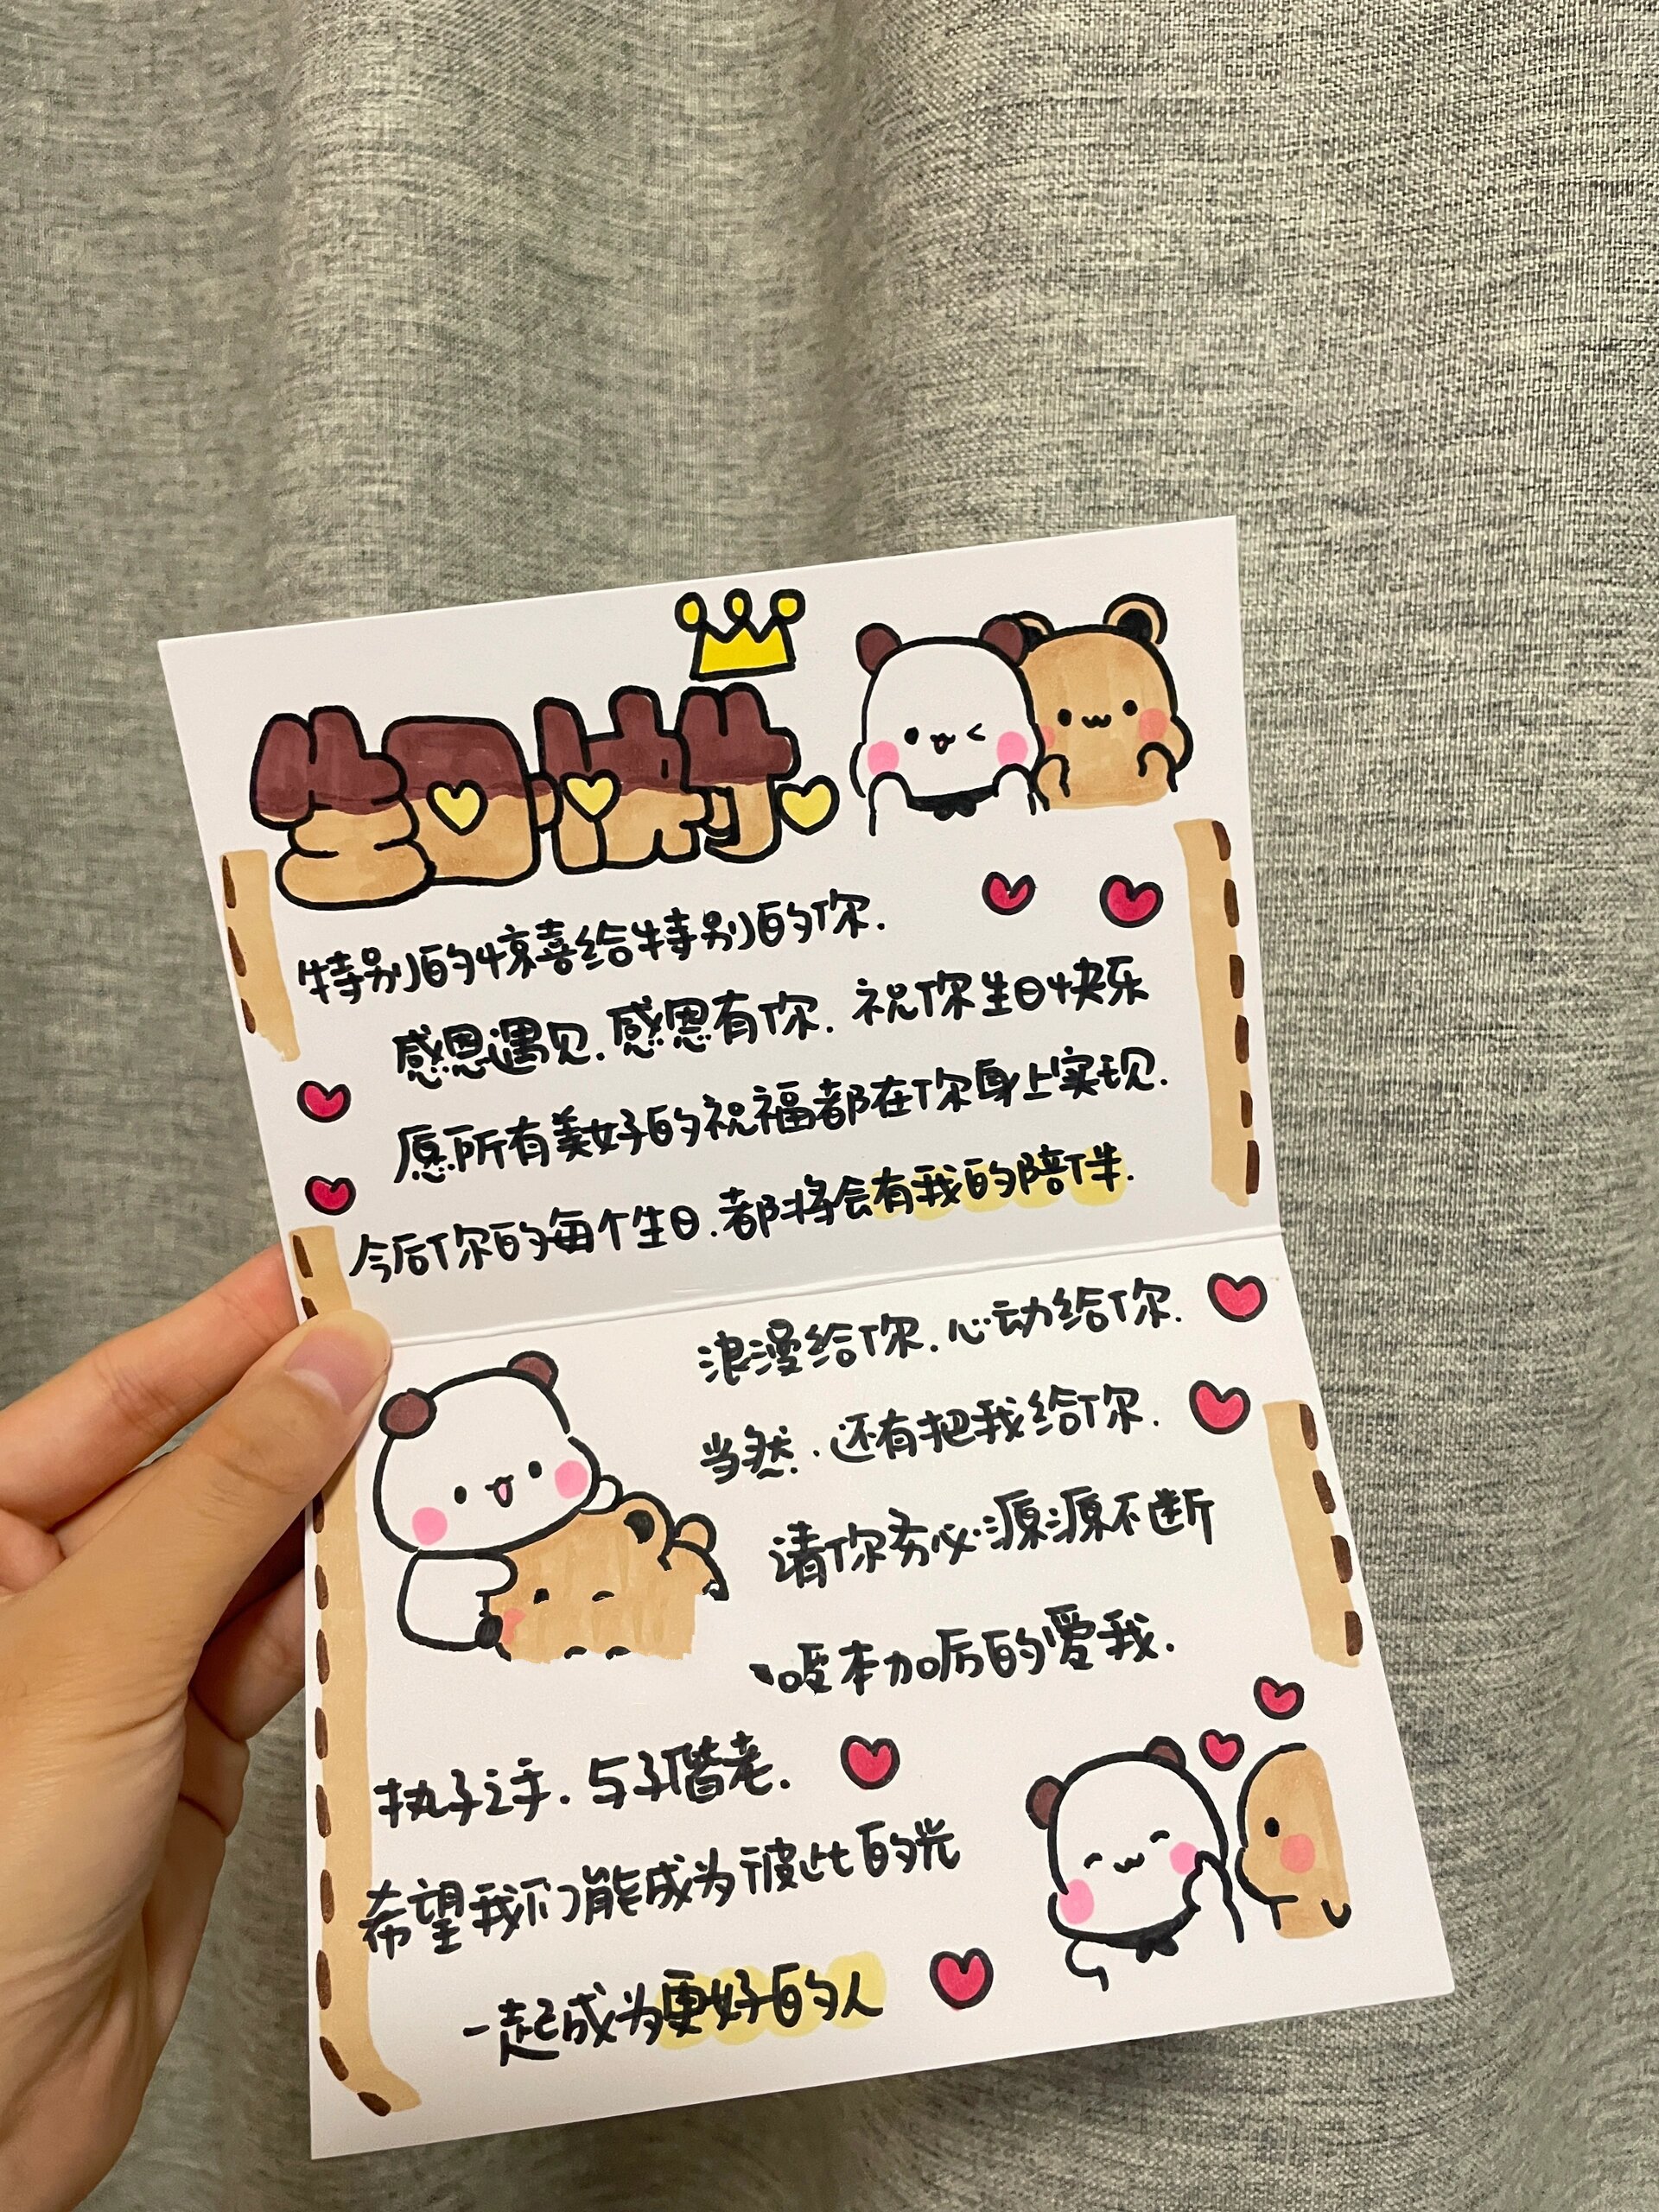 生日快乐
特别的惊喜给特别的你.
感恩遇见.感恩有你.祝你生日快乐
愿所有美好的祝福都在你身上实现.
今后你的每个生日.都将会有我的陪伴.
浪漫给你.心动给你.
当然.还有把我给你.
请你务必源源不断
变本加厉的爱我.
执子之手.与子偕老.
希望我们能成为彼此的光
一起成为更好的人